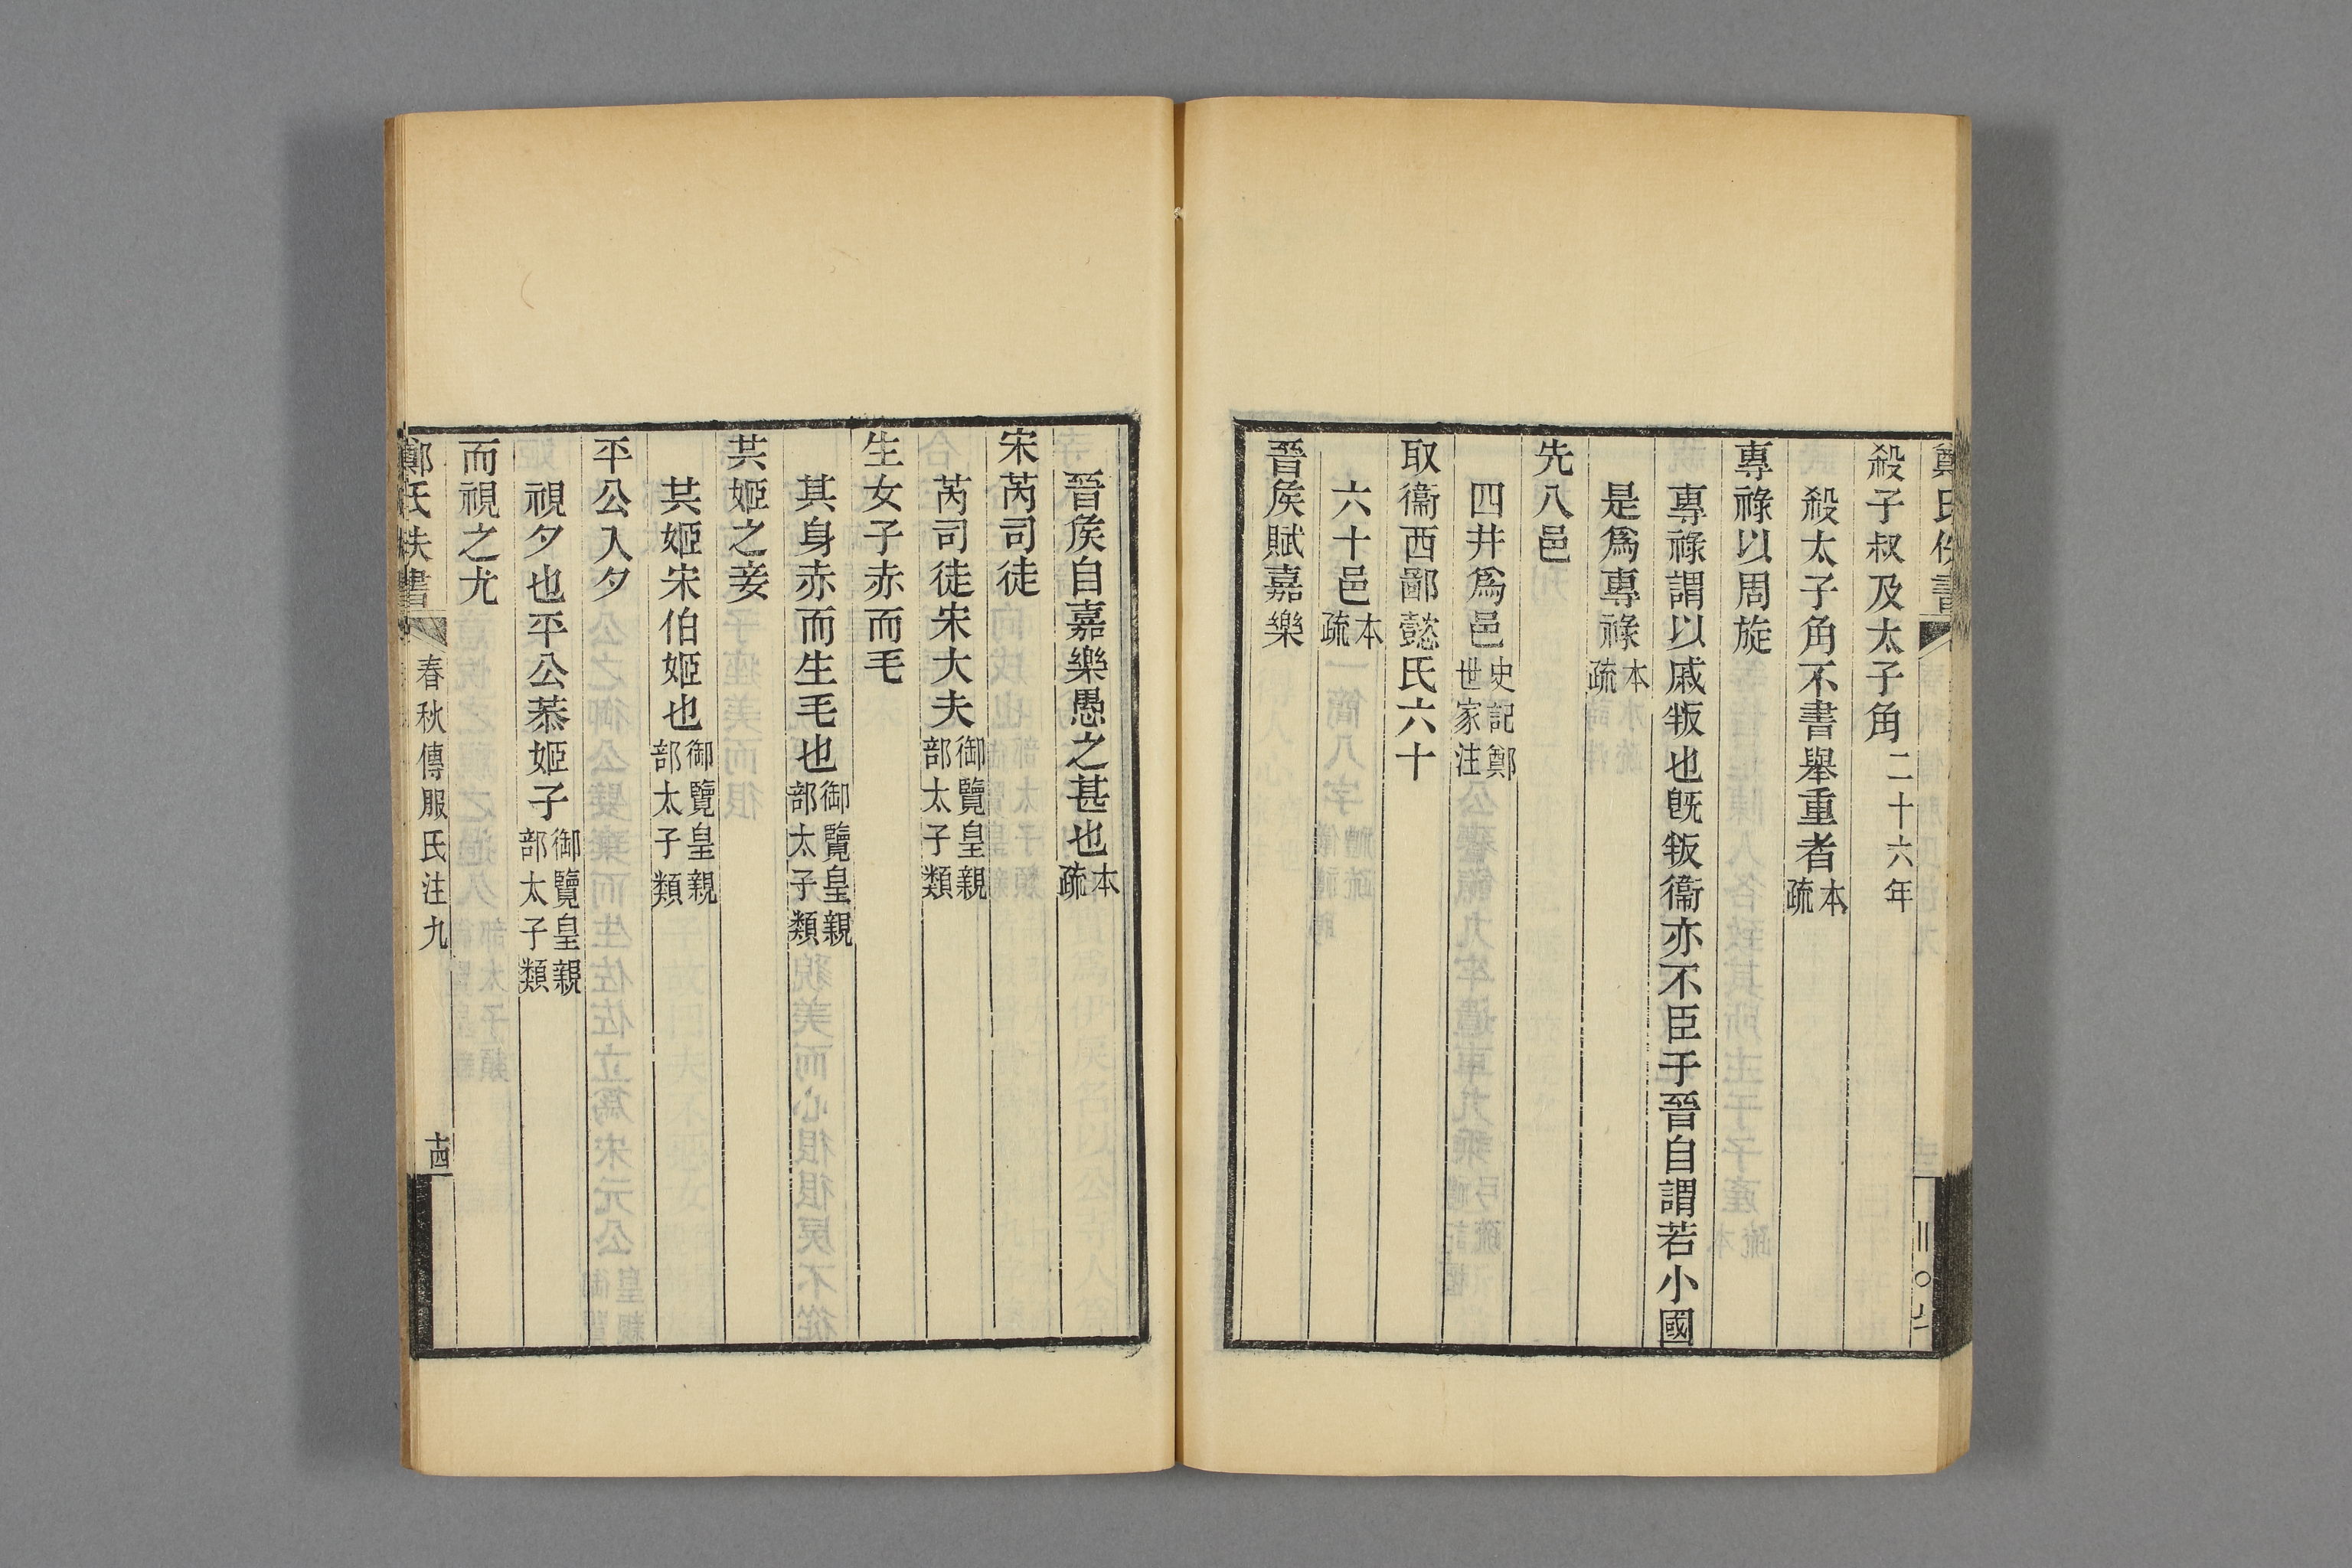 殺子叔及太子角二十六年
殺太子角不書舉重者本疏
專祿以周旋
專祿謂以戚叛也旣叛衞亦不臣于晉自謂若小國
是爲專祿本疏
先八邑
四井爲邑史記鄭世家注
取衞西鄙懿氏六十
六十邑本疏
晉矦賦嘉樂
晉矦自嘉樂愚之甚也本疏
宋芮司徒
芮司徒宋大夫御覽皇親部太子類
生女子赤而毛
其身赤而生毛也御覽皇親部太子類
共姬之妾
共姬宋伯姬也御覽皇親部太子類
平公入夕
視夕也平公恭姬子御覽皇親部太子類
而視之尤
鄭氏佚書
春秋傳服氏注九
十四